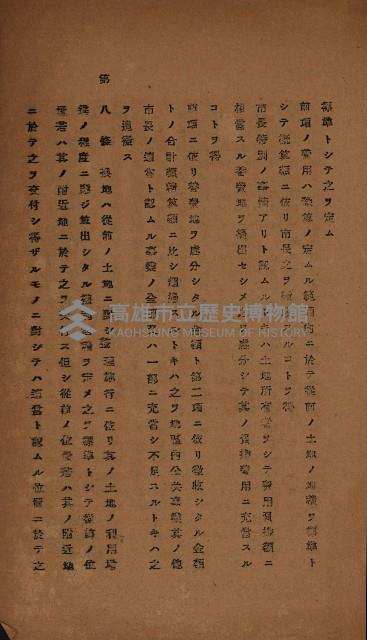 標準トシテ之ヲ定ム
前項ノ費用ハ換算ノ定ムル範圍内ニ於テ從前ノ土地ノ地積ヲ標準ト
シテ概算額ニ依リ市長之ヲ コトヲ得
市長特別ノ事情アリト認ムル ハ土地所有者ヲシテ費用負擔額ニ
相當スル替費地ヲ提出セシメ 處分シテ其ノ負擔費用ニ充當スル
コトヲ得
前項ニ依リ替費地ヲ處分シタル金額ト第二項ニ依リ徵收シタル金額
トノ合計額精算額ニ比シ超過 トキハ之ヲ地區内公共事業其ノ他
市長ノ適當ト認ムル事業ノ全 一部ニ充當シ不足スルトキハ之
ヲ追徵ス
第八條 換地ハ從前ノ土地ニ對シ 施行ニ依リ其ノ土地ノ利用增
進ノ程度ニ應ジ算出シタル ヲ定メ之ヲ標準トシテ從前ノ位
置若ハ其ノ附近地ニ於テ之ヲ 但シ從前ノ位置若ハ其ノ附近地
ニ於テ之ヲ交付シ得ザルモノニ對シテハ適當ト認ムル位置ニ於テ之
高雄市立歷史博物館
KAOHSIUNG MUSEUM OF HISTORY